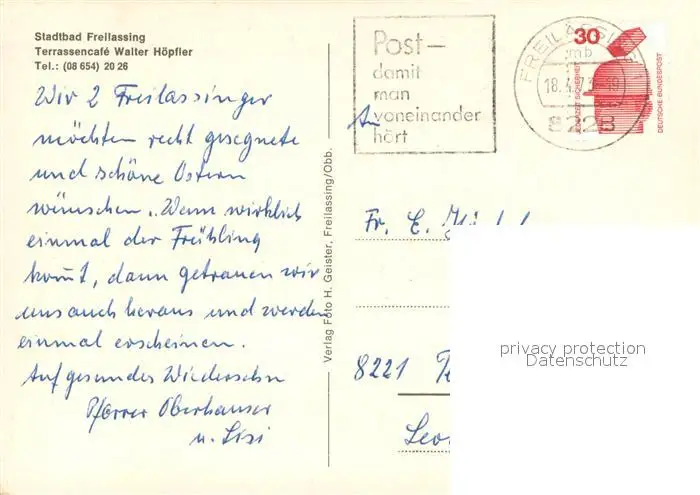 Stadtbad Freilassing
Terrassencafé Walter Höpfler
Tel.: (08 654) 20 26
Wir 2 Freilassinger
möchten recht gesegnete
und schöne Ostern
wünschen. Wenn wirklich
einmal der Frühling
kommt, dann getrauen wir
uns auch heraus und werden
einmal erscheinen.
Auf gesundes Wiedersehn
Pfarrer Oberhauser
u. Lisi
Verlag Foto H. Geister, Freilassing/Obb.
Post –
damit
man
voneinander
hört
An
FREILASSING
mb
18.4.
8228
30
JEDERZEIT SICHERHEIT
DEUTSCHE BUNDESPOST
Fr. E.
8221
privacy protection
Datenschutz